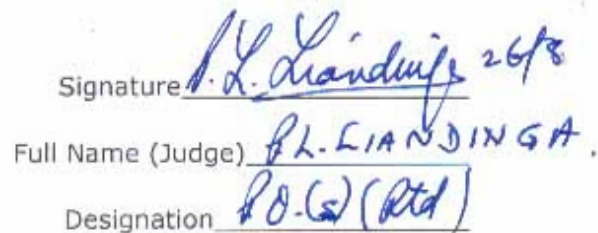 Signature P.L. Liandinga 26/8
Full Name (Judge) P L. LIANDINGA.
Designation P.O.(s) (Rtd)